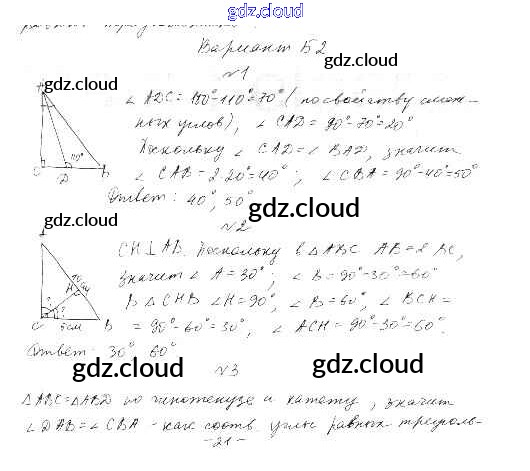 gdz.cloud
Вариант Б2
gdz.cloud
gdz.cloud
№1
∠ ADC = 180°-110°=70° (по свойству смеж-
ных углов), ∠ CAD = 90°-70°=20°
Поскольку ∠ CAD = ∠ BAD, значит
∠ CAB = 2·20°=40°; ∠ CBA = 90°-40°=50°
110°
C D B
Ответ: 40°, 50°
gdz.cloud
gdz.cloud
№2
CH⊥AB. Поскольку в △ABC AB=2 BC,
значит ∠ A = 30°; ∠ B = 90°-30°=60°
В △ CHB ∠H = 90°, ∠ B = 60°, ∠ BCH =
= 90°-60°=30°, ∠ ACH = 90°-30°=60°.
10 см
H
? ?
C 5см B
Ответ: 30°, 60°
gdz.cloud
gdz.cloud
№3
△ABC=△ABD по гипотенузе и катету, значит
∠ DAB = ∠ CBA - как соотв. углы равных треуголь-
-21-
gdz.cloud